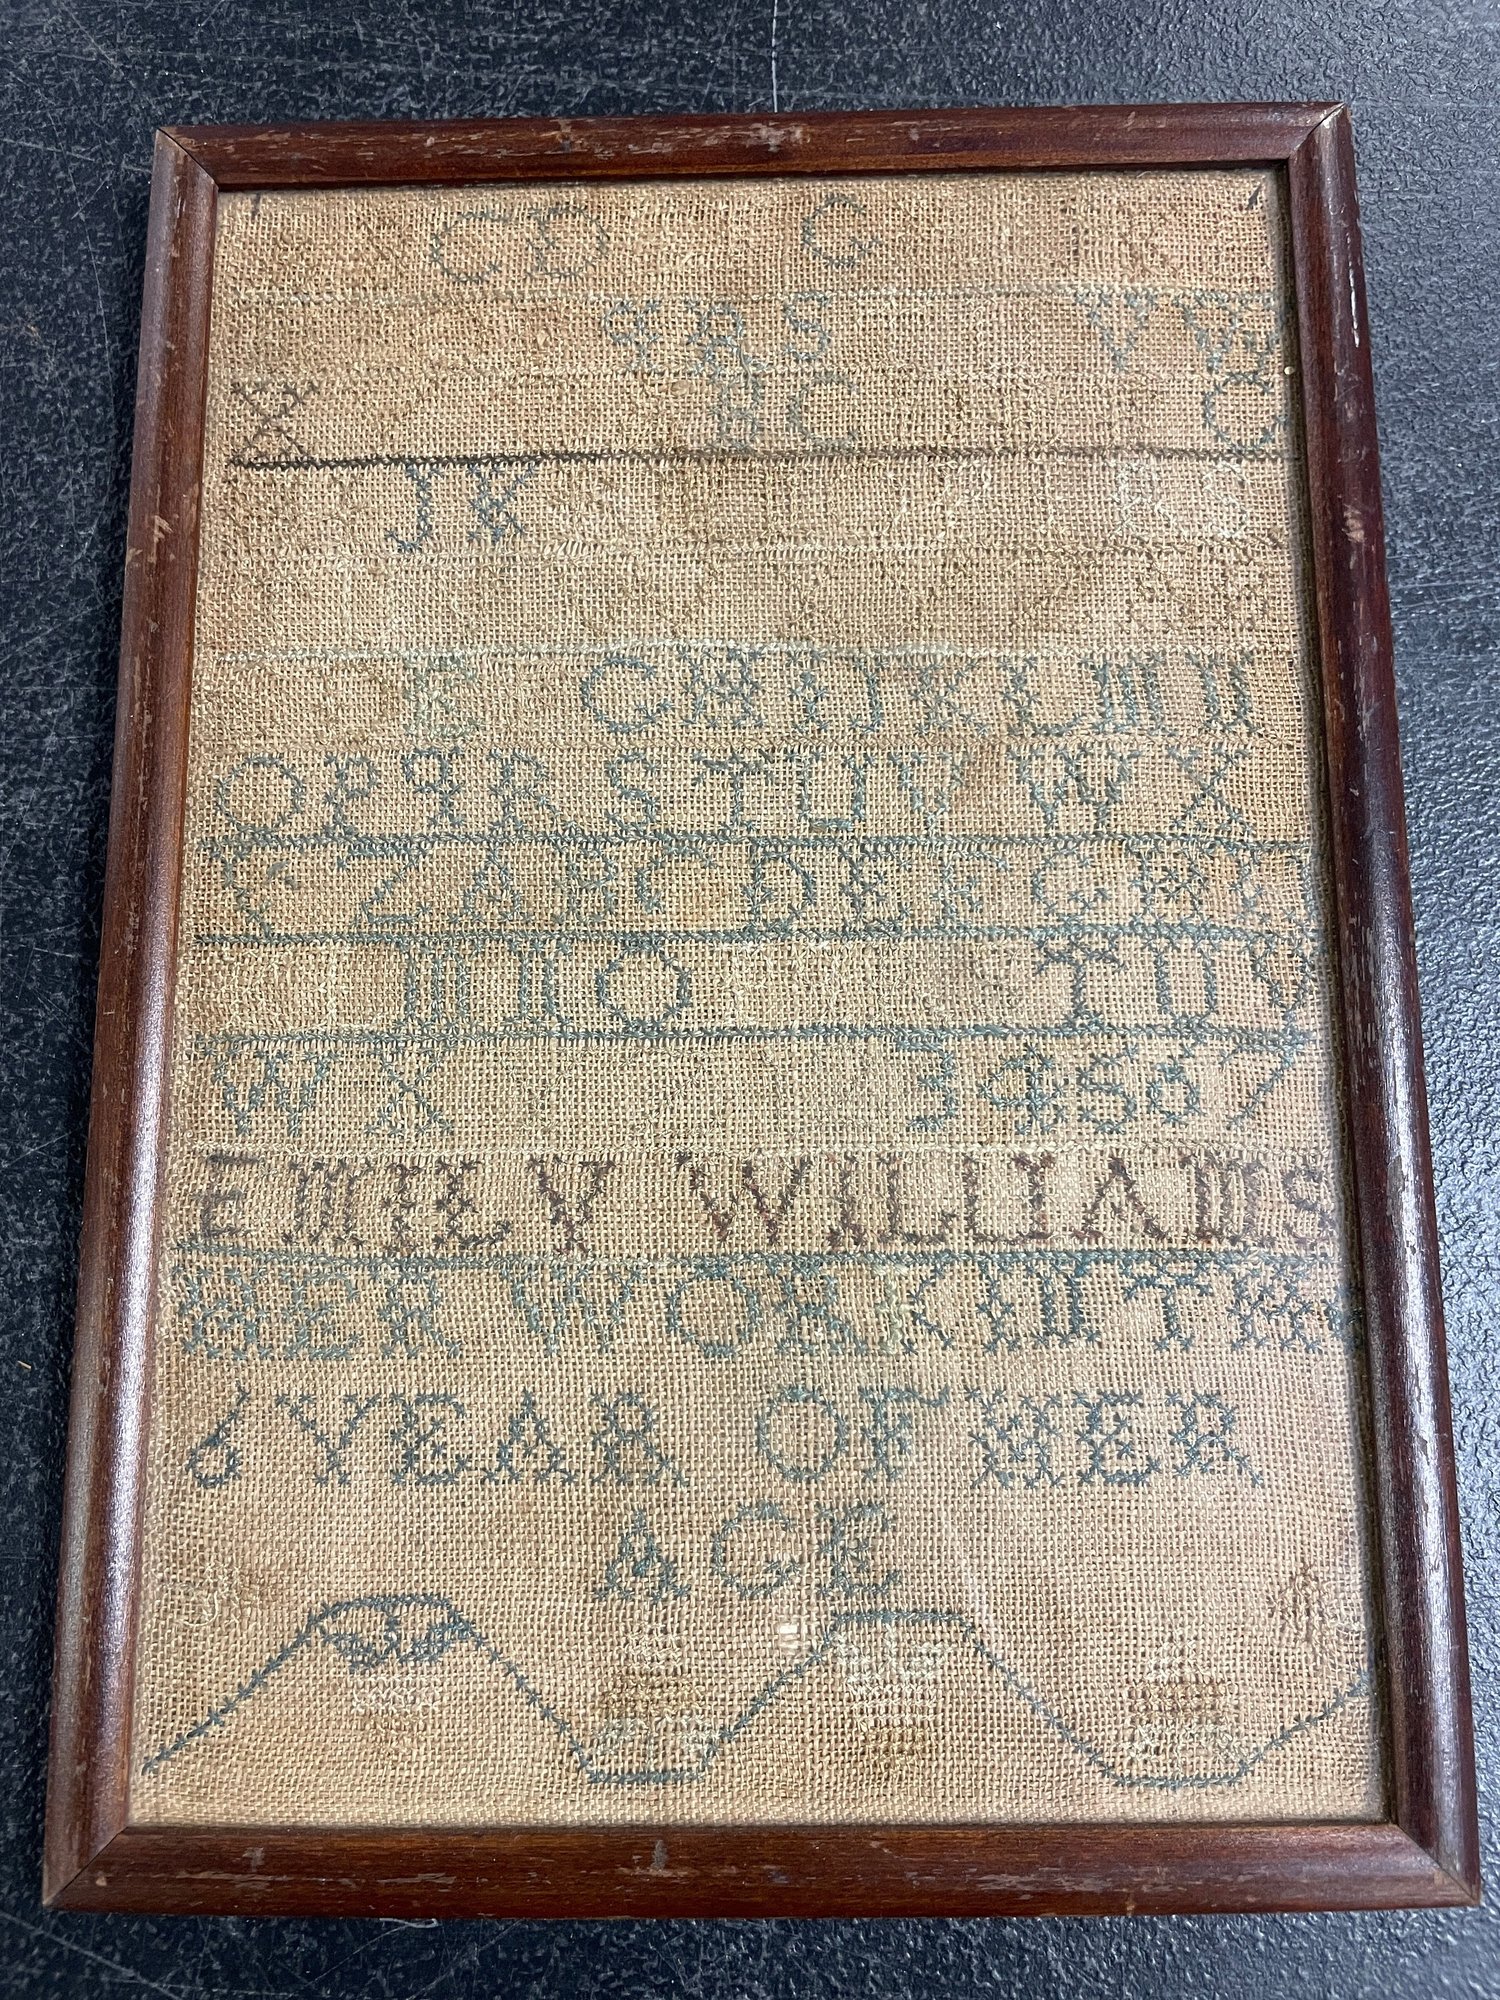 C D G
q R S V W
X B C
J K R S
E G H I J K L M N
O P q R S T U V W X
Y Z A B C D E F G H I
M N O T U V
W X 3 4 5 6 7
EMILY WILLIAMS
HER WORK IN THE
6 YEAR OF HER
AGE